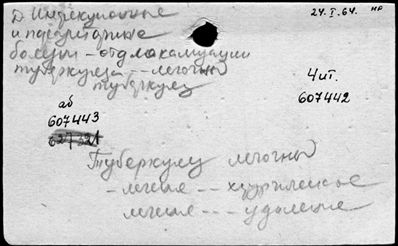 24.I.64. НР
Д Инфекционные
и паразитарные
болезни - отд локализации
туберкулеза -- легочный
туберкулез
Чит.
607442
аб
607443
Туберкулез легочный
- легкие -- хирургическое
легкие --- удаление